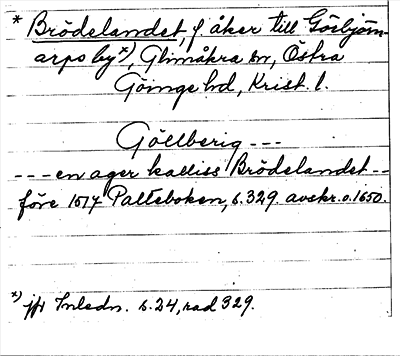 * Brödelandet, f åker till Görbjörn-
arps by*), Glimåkra sn, Östra
Göinge hd, Krist. l.
Göllberig ---
--- en ager kalliss Brödelandet --
före 1574 Palteboken, s. 329. avskr. o. 1650.
*) jfr Inledn. s. 24, rad 329.